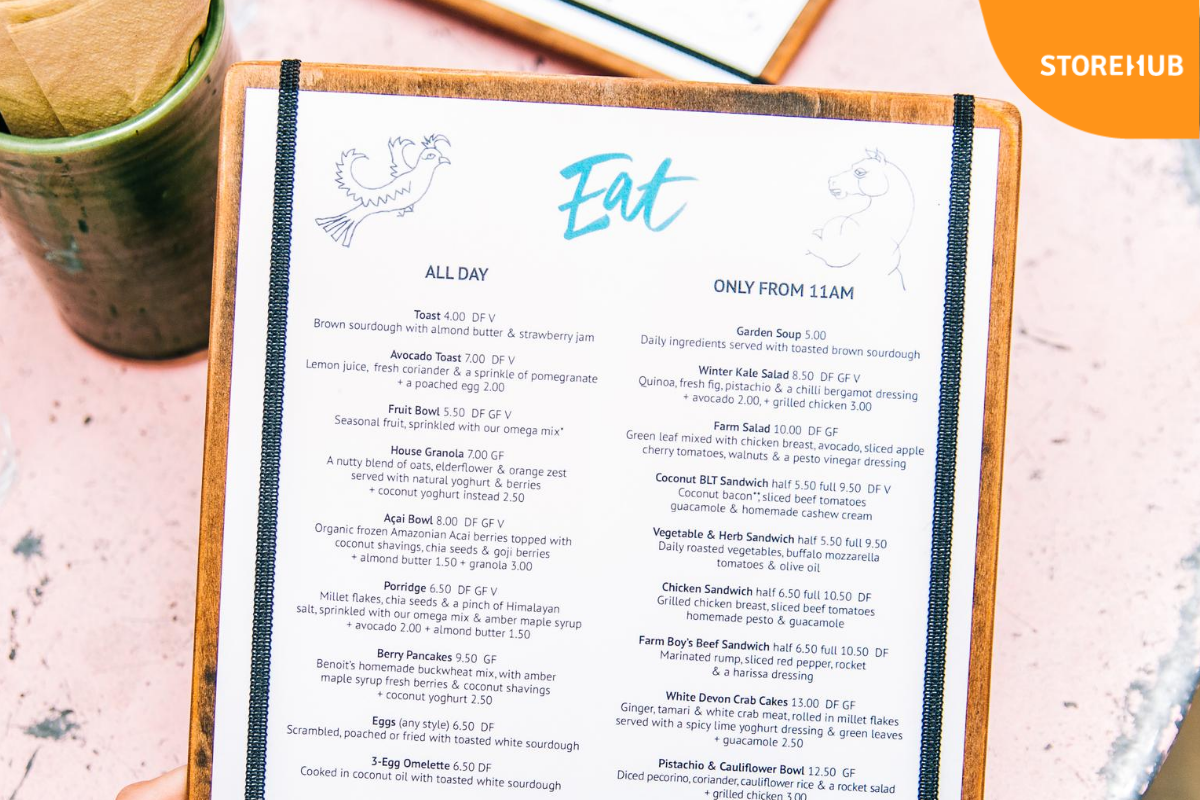 STOREHUB
Eat
ALL DAY
Toast 4.00 DF V
Brown sourdough with almond butter & strawberry jam
Avocado Toast 7.00 DF V
Lemon juice, fresh coriander & a sprinkle of pomegranate
+ a poached egg 2.00
Fruit Bowl 5.50 DF GF V
Seasonal fruit, sprinkled with our omega mix*
House Granola 7.00 GF
A nutty blend of oats, elderflower & orange zest
served with natural yoghurt & berries
+ coconut yoghurt instead 2.50
Açai Bowl 8.00 DF GF V
Organic frozen Amazonian Acai berries topped with
coconut shavings, chia seeds & goji berries
+ almond butter 1.50 + granola 3.00
Porridge 6.50 DF GF V
Millet flakes, chia seeds & a pinch of Himalayan
salt, sprinkled with our omega mix & amber maple syrup
+ avocado 2.00 + almond butter 1.50
Berry Pancakes 9.50 GF
Benoit's homemade buckwheat mix, with amber
maple syrup fresh berries & coconut shavings
+ coconut yoghurt 2.50
Eggs (any style) 6.50 DF
Scrambled, poached or fried with toasted white sourdough
3-Egg Omelette 6.50 DF
Cooked in coconut oil with toasted white sourdough
ONLY FROM 11AM
Garden Soup 5.00
Daily ingredients served with toasted brown sourdough
Winter Kale Salad 8.50 DF GF V
Quinoa, fresh fig, pistachio & a chilli bergamot dressing
+ avocado 2.00, + grilled chicken 3.00
Farm Salad 10.00 DF GF
Green leaf mixed with chicken breast, avocado, sliced apple
cherry tomatoes, walnuts & a pesto vinegar dressing
Coconut BLT Sandwich half 5.50 full 9.50 DF V
Coconut bacon**, sliced beef tomatoes
guacamole & homemade cashew cream
Vegetable & Herb Sandwich half 5.50 full 9.50
Daily roasted vegetables, buffalo mozzarella
tomatoes & olive oil
Chicken Sandwich half 6.50 full 10.50 DF
Grilled chicken breast, sliced beef tomatoes
homemade pesto & guacamole
Farm Boy's Beef Sandwich half 6.50 full 10.50 DF
Marinated rump, sliced red pepper, rocket
& a harissa dressing
White Devon Crab Cakes 13.00 DF GF
Ginger, tamari & white crab meat, rolled in millet flakes
served with a spicy lime yoghurt dressing & green leaves
+ guacamole 2.50
Pistachio & Cauliflower Bowl 12.50 GF
Diced pecorino, coriander, cauliflower rice & a rocket salad
+ grilled chicken 3.00